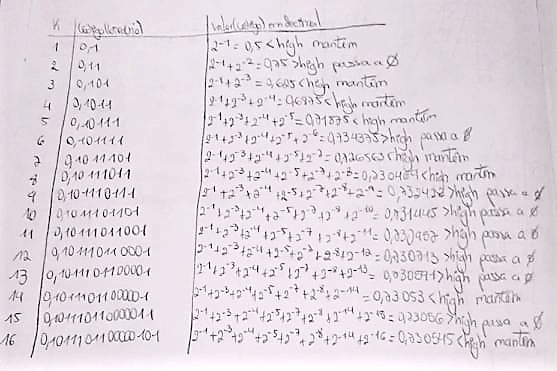 K código(binário) valor(código) em decimal
1 0,1 2^-1 = 0,5 < high mantém
2 0,11 2^-1+2^-2 = 0,75 > high passa a Ø
3 0,101 2^-1+2^-3 = 0,625 < high mantém
4 0,1011 2^-1+2^-3+2^-4 = 0,6875 < high mantém
5 0,10111 2^-1+2^-3+2^-4+2^-5 = 0,71875 < high mantém
6 0,101111 2^-1+2^-3+2^-4+2^-5+2^-6 = 0,734375 > high passa a Ø
7 0,1011101 2^-1+2^-3+2^-4+2^-5+2^-7 = 0,726563 < high mantém
8 0,10111011 2^-1+2^-3+2^-4+2^-5+2^-7+2^-8 = 0,730469 < high mantém
9 0,101110111 2^-1+2^-3+2^-4+2^-5+2^-7+2^-8+2^-9 = 0,732422 > high passa a Ø
10 0,1011101101 2^-1+2^-3+2^-4+2^-5+2^-7+2^-8+2^-10 = 0,731445 > high passa a Ø
11 0,10111011001 2^-1+2^-3+2^-4+2^-5+2^-7+2^-8+2^-11 = 0,730957 > high passa a Ø
12 0,101110110001 2^-1+2^-3+2^-4+2^-5+2^-7+2^-8+2^-12 = 0,730713 > high passa a Ø
13 0,1011101100001 2^-1+2^-3+2^-4+2^-5+2^-7+2^-8+2^-13 = 0,730591 > high passa a Ø
14 0,10111011000001 2^-1+2^-3+2^-4+2^-5+2^-7+2^-8+2^-14 = 0,73053 < high mantém
15 0,101110110000011 2^-1+2^-3+2^-4+2^-5+2^-7+2^-8+2^-14+2^-15 = 0,73056 > high passa a Ø
16 0,1011101100000101 2^-1+2^-3+2^-4+2^-5+2^-7+2^-8+2^-14+2^-16 = 0,730545 < high mantém